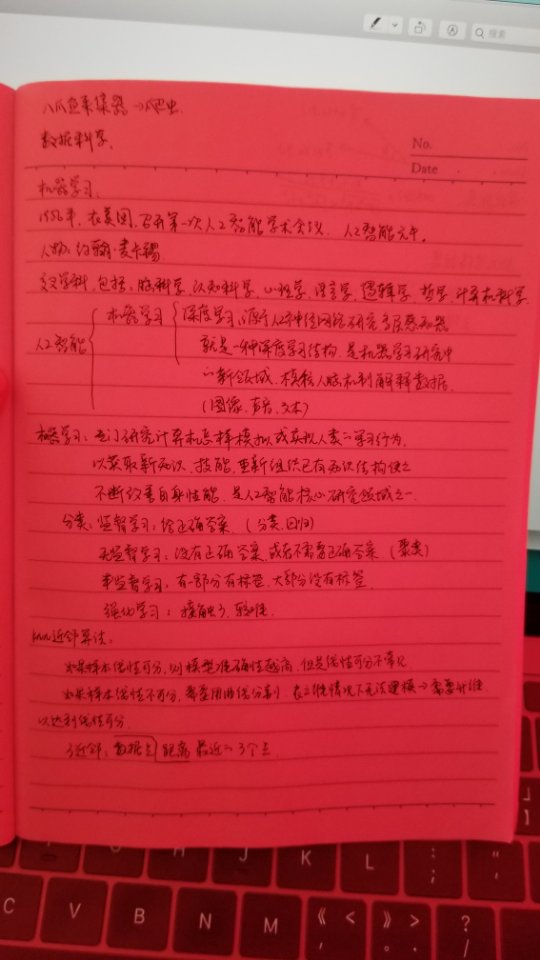 搜索
八爪鱼采集器→爬虫.
数据科学.
No.
Date
机器学习.
1956年, 在美国, 召开第一次人工智能学术会议. 人工智能元年.
人物: 约翰·麦卡锡
交叉学科, 包括: 脑科学, 认知科学, 心理学, 语言学, 逻辑学, 哲学, 计算机科学
人工智能 机器学习 深度学习, 源于人工神经网络研究多层感知器
就是一种深度学习结构, 是机器学习研究中
的新领域. 模仿人脑机制解释数据.
(图像, 声音, 文本)
机器学习: 专门研究计算机怎样模拟或实现人类的学习行为,
以获取新知识、技能, 重新组织已有知识结构使之
不断改善自身性能, 是人工智能核心研究领域之一.
分类: 监督学习: 给正确答案. (分类, 回归)
无监督学习: 没有正确答案, 或者不需要正确答案 (聚类)
半监督学习: 有一部分有标签, 大部分没有标签.
强化学习: 接触少, 较难.
knn近邻算法:
如果样本线性可分, 则模型准确性越高, 但是线性可分不常见.
如果样本线性不可分, 需要用曲线分割. 在二维情况下无法建模→需要升维
以达到线性可分.
3近邻: 数据点 距离 最近的3个点.
J K L : ; " '
C V B N M 《 < , 》 > . ? /